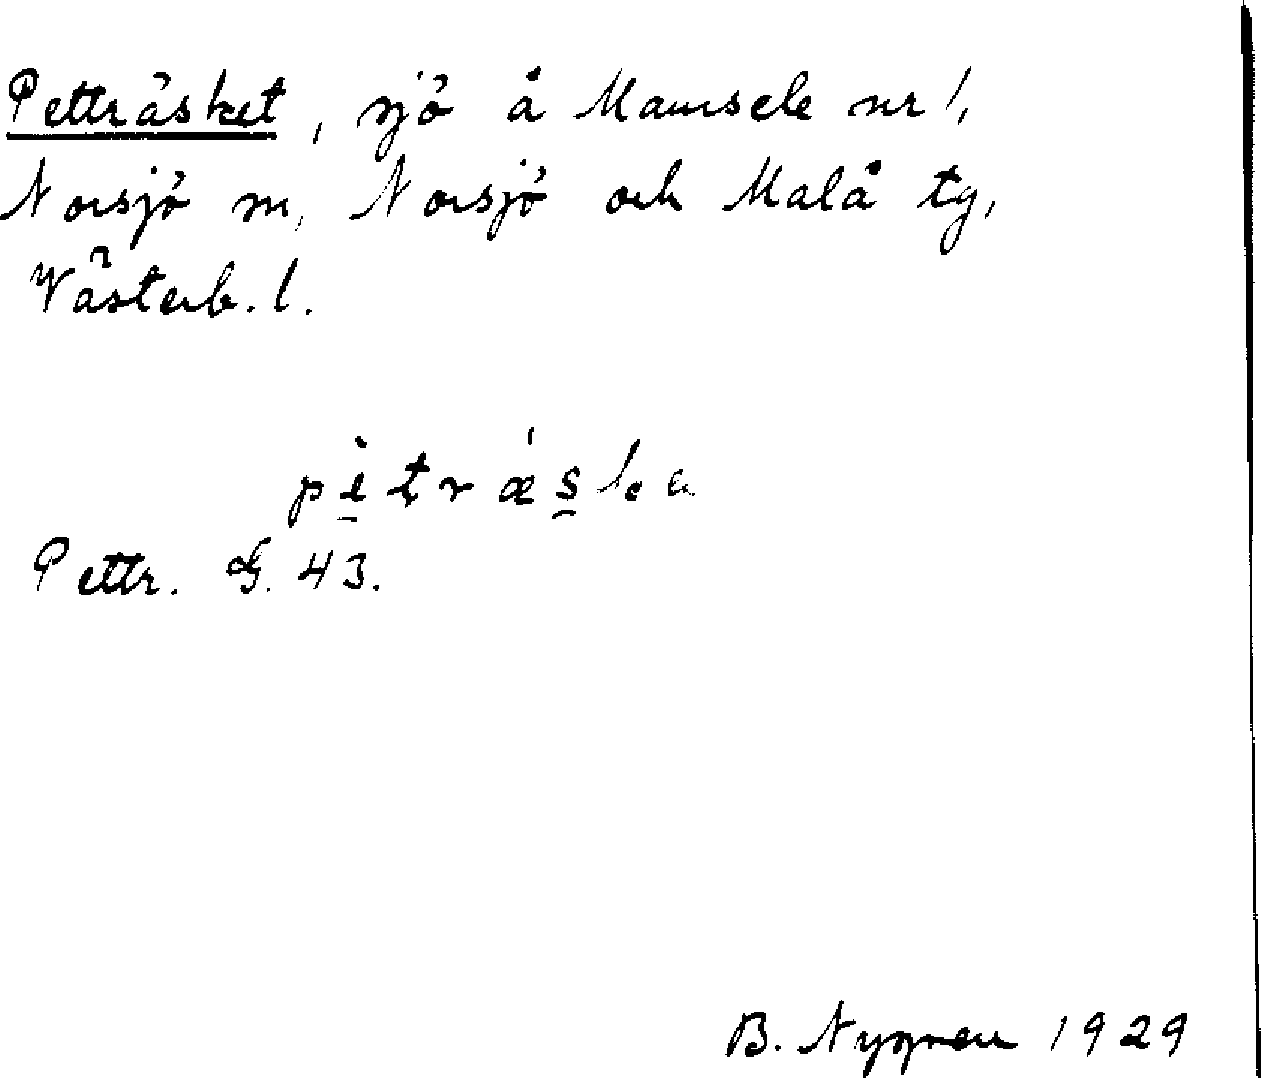 Petträsket, sjö å Mausele nr 1,
Norsjö sn, Norsjö och Malå tg,
Västerb. l.
pètræ´ska
Pettr. G. 43.
B. Nygren 1929